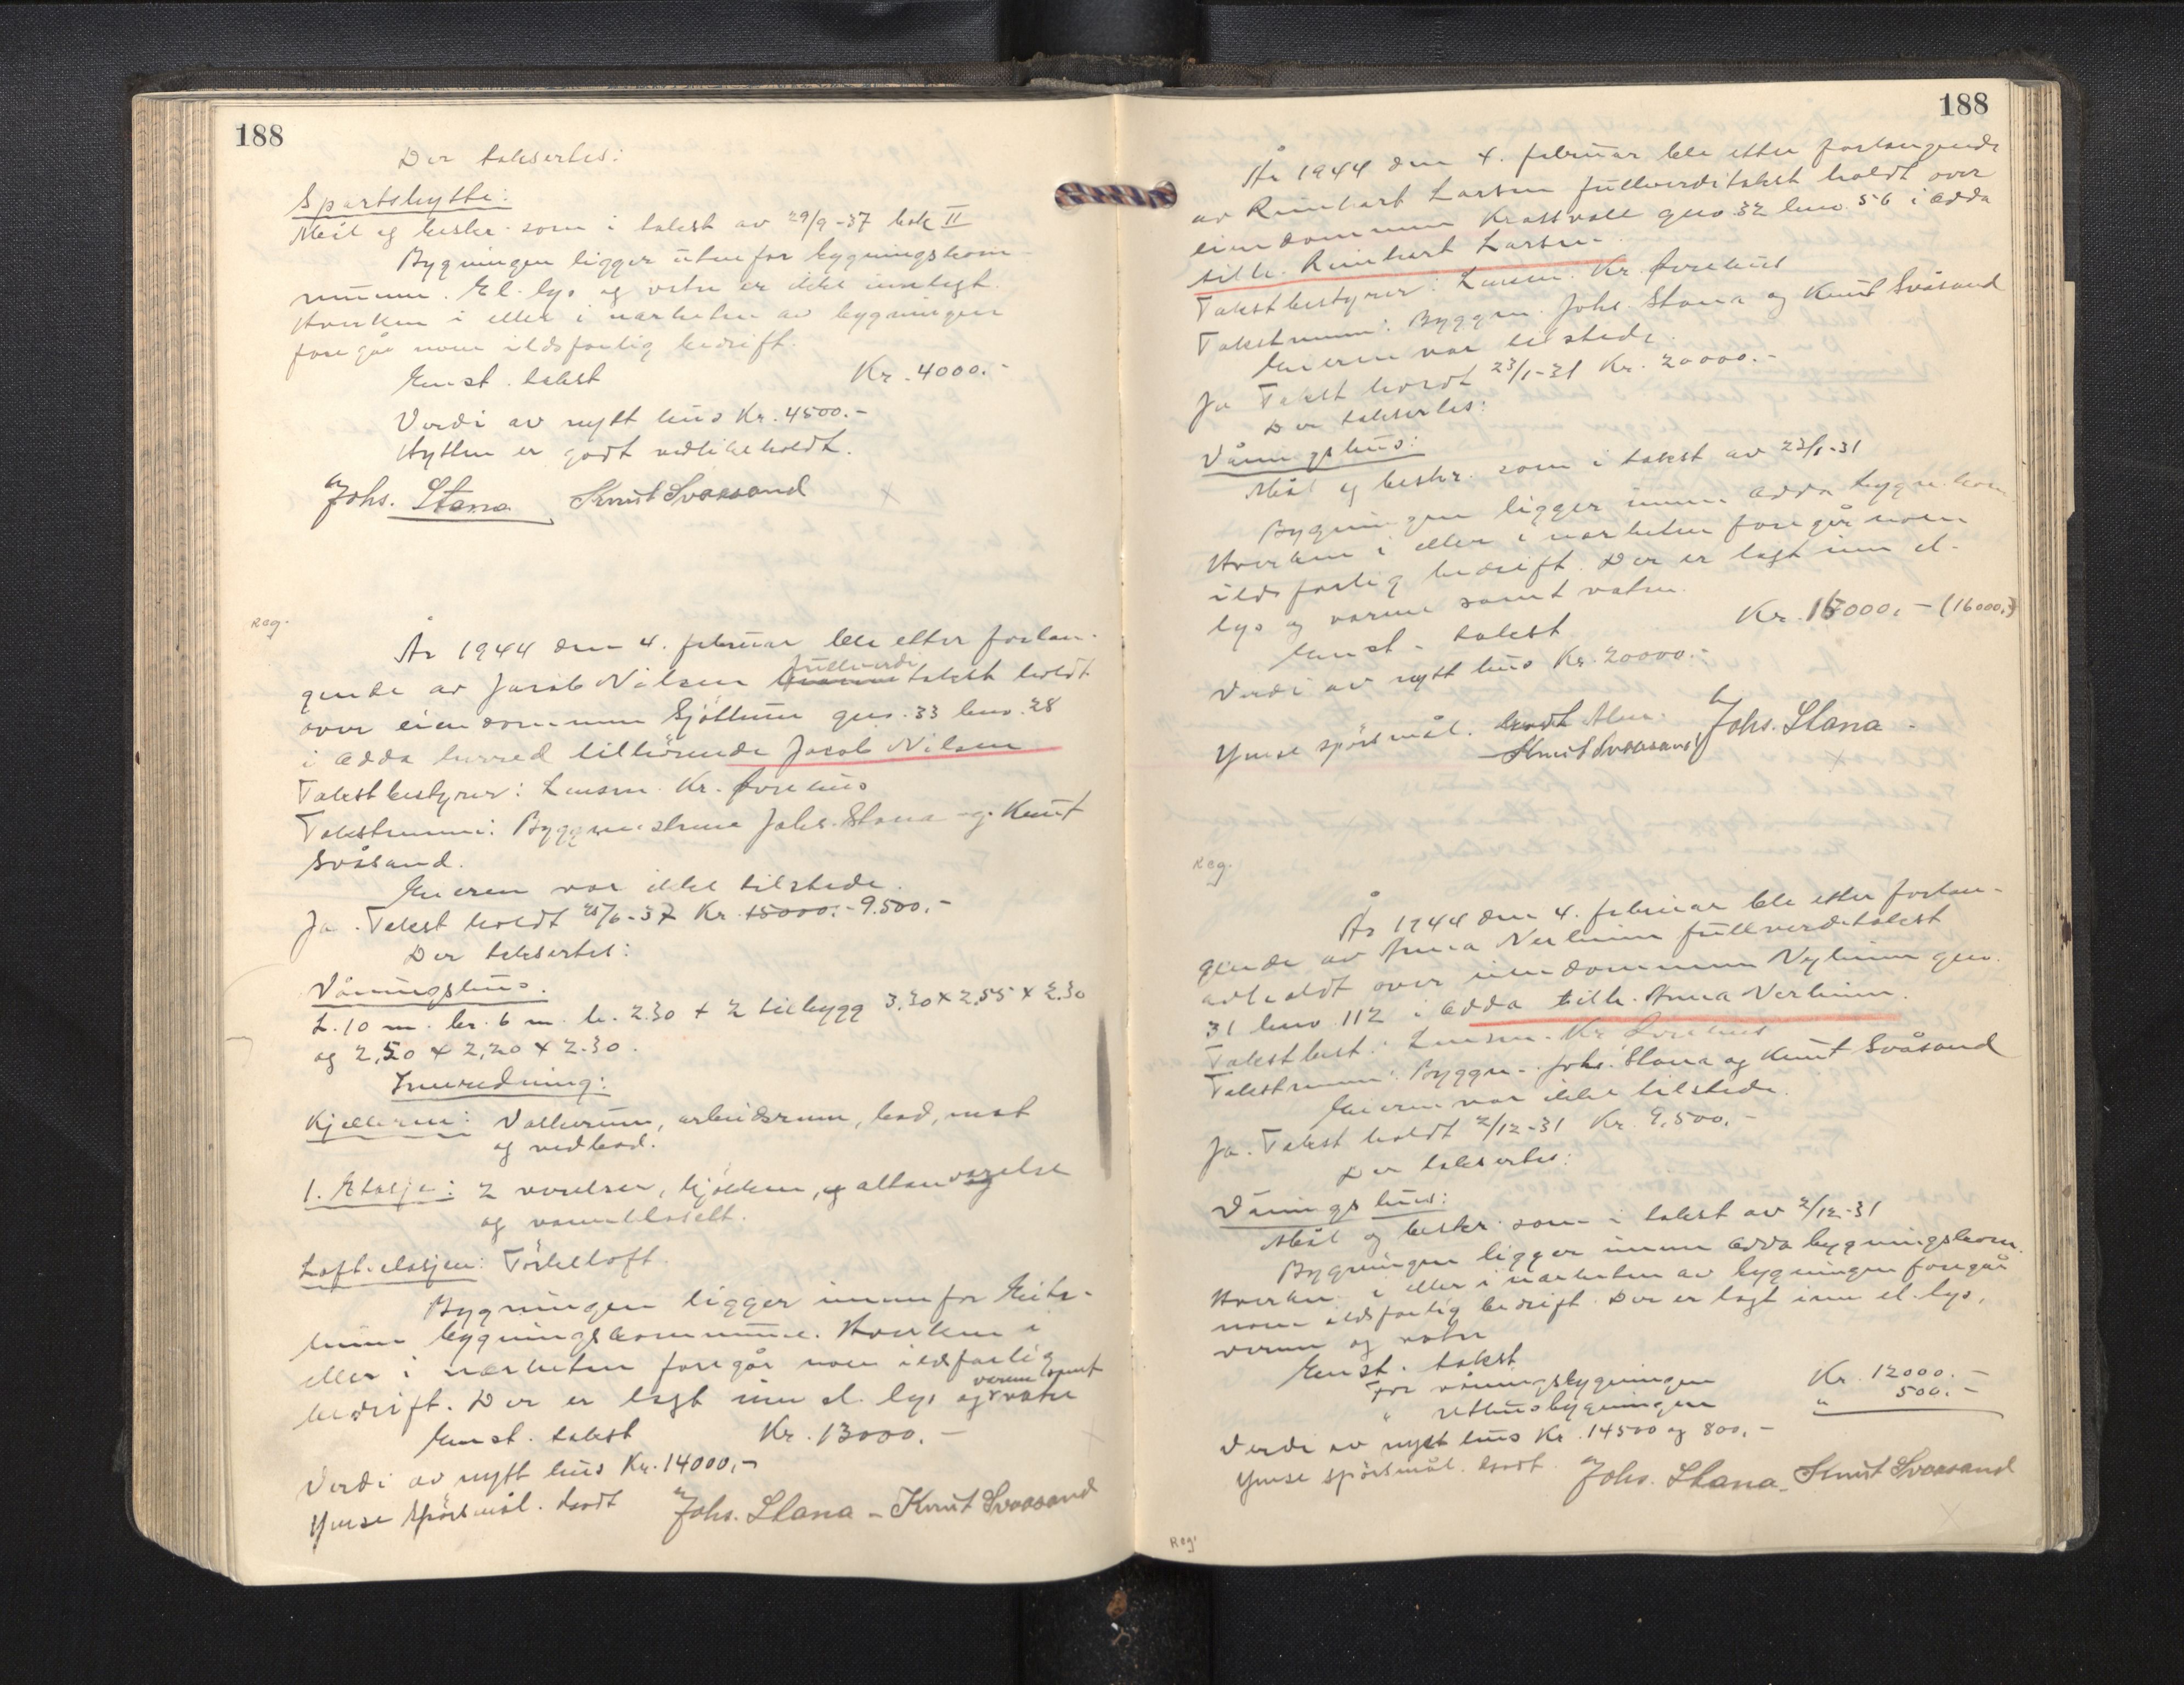 188
Der takseres:
Sportshytte:
Mål og beskr. som i takst av 29/9-37 bok II
Bygningen ligger utenfor bygningskom-
munen. El. lys og vatn er ikke innlagt.
Hverken i eller i nærheten av bygningen
foregår noen ildsfarlig bedrift.
Enst. takst Kr. 4000.-
Verdi av nytt hus Kr. 4500.-
Hytten er godt vedlikeholdt.
Johs. Stana Knut Svaasand
Reg.
År 1944 den 4. februar ble etter forlan-
gende av Jacob Nilsen fullverdi takst holdt
over eiendommen Sjøttun gno. 33 bno. 28
i Odda herred tilhørende Jacob Nilsen
Takstbestyrer: Lensm. Kr. Øvrehus
Takstmenn: Byggmestrene Johs. Stana og Knut
Svåsand.
Eieren var ikke tilstede.
Ja. Takst holdt 25/6-37 Kr. 15000.- 9.500.-
Der takseres:
Våningshus.
L. 10 m. br. 6 m. h. 2.30 + 2 tilbygg 3,30 x 2,55 x 2.30
og 2,50 x 2,20 x 2.30.
Innredning:
Kjelleren: Vaskerum, arbeidsrum, bod, mat
og vedbod.
1. Etasje: 2 værelser, kjøkken, og altanværelse
og vannklosett.
Loft-etasjen: Tørkeloft.
Bygningen ligger innenfor Eitr-
heim bygningskommune. Hverken i
eller i nærheten foregår noen ildsfarlig
bedrift. Der er lagt inn el. lys og varme samt vatn
Enst. takst Kr. 13000.-
Verdi av nytt hus Kr. 14000,-
Ymse spørsmål. Godt Johs. Stana - Knut Svaasand
188
År 1944 den 4. februar ble etter forlangende
av Reinhart Larsen fullverditakst holdt over
eiendommen Krossvoll gno. 32 bno. 56 i Odda
tilh. Reinhart Larsen
Takstbestyrer: Lensm. Kr. Øvrehus
Takstmenn: Byggm. Johs. Stana og Knut Svåsand
Eieren var tilstede.
Ja Takst holdt 23/1-31 Kr. 20000.-
Der takseres:
Våningshus:
Mål og beskr. som i takst av 23/1-31
Bygningen ligger innen Odda bygn. kom
Hverken i eller i nærheten foregår noen
ildsfarlig bedrift. Der er lagt inn el-
lys og varme samt vatn.
Enst. takst Kr. 16000.- (16000,-)
Verdi av nytt hus Kr. 20000.-
Ymse spørsmål. Johs. Stana -
Knut Svaasand
Reg.
År 1944 den 4. februar ble etter forlan-
gende av Anna Nerheim fullverditakst
avholdt over eiendommen Nyheim gno.
31 bno. 112 i Odda tilh. Anna Nerheim.
Takstbest.: Lensm. Kr. Øvrehus
Takstmenn: Byggm. Johs. Stana og Knut Svåsand
Eieren var ikke tilstede.
Ja. Takst holdt 2/12-31 Kr. 9,500.-
Der takseres:
Våningshus:
Mål og beskr. som i takst av 2/12-31
Bygningen ligger innen Odda bygningskom.
Hverken i eller i nærheten av bygningen foregår
noen ildsfarlig bedrift. Der er lagt inn el. lys,
varme og vatn
Enst. takst
For våningsbygningen Kr. 12000.-
" uthusbygningen " 500.-
Verdi av nytt hus Kr. 14500 og 800.-
Ymse spørsmål. Godt. Johs. Stana - Knut Svaasand
Reg.